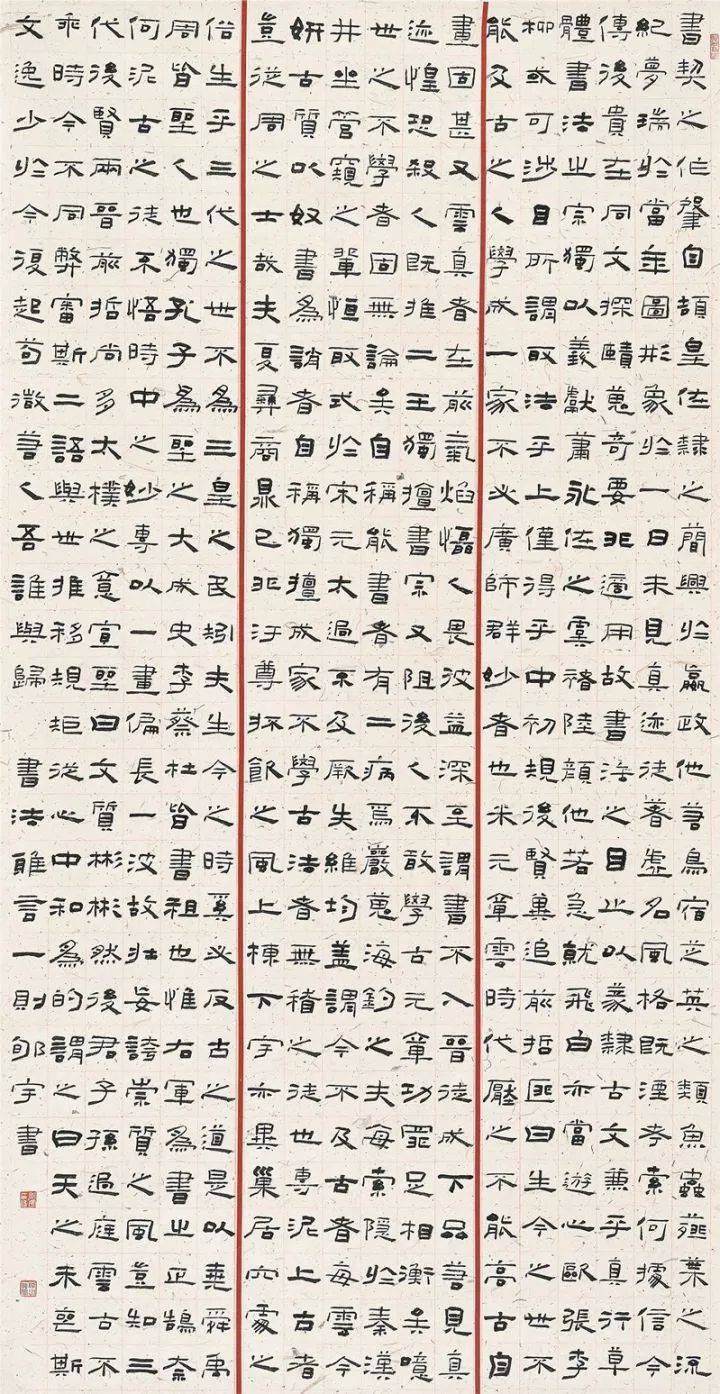 書契之作肇自頡皇佐隸之簡興於嬴政他若鳥宿芝英之類魚蟲薤葉之流
紀夢瑞於當年圖形象於一日未見真迹徒著虛名風格既湮考索何據信今
傳後貴在同文探賾蒐奇要非適用故書法之目止以篆隸古文兼乎真行草
體書法之宗獨以羲獻蕭永佐之虞褚陸顏他若急就飛白亦當遊心歐張李
柳或可涉目所謂取法乎上僅得乎中初規後賢冀追前哲匪曰生今之世不
能及古之人學成一家不必廣師群妙者也米元章雲時代壓之不能高古自
畫固甚又雲真者在前氣焰懾人畏彼益深至謂書不入晉徒成下品若見真
迹惶恐殺人既推二王獨擅書宗又阻後人不敢學古元章功罪足相衡矣噫
世之不學者固無論矣自稱能書者有二病焉巖蒐海釣之夫每索隱於秦漢
井坐管窺之輩恒取式於宋元太過不及厥失維均蓋謂今不及古者每雲今
妍古質以奴書為誚者自稱獨擅成家不學古法者無稽之徒也專泥上古者
豈從周之士哉夫夏彝商鼎已非汙尊抔飲之風上棟下宇亦異巢居穴處之
俗生乎三代之世不為三皇之民矧夫生今之時奚必反古之道是以堯舜禹
周皆聖人也獨孔子為聖之大成史李蔡杜皆書祖也惟右軍為書之正鵠奈
何泥古之徒不悟時中之妙專以一畫偏長一波故壯妄誇崇質之風豈知三
代後賢兩晉前哲尚多太樸之意宣聖曰文質彬彬然後君子孫過庭雲古不
乖時今不同弊審斯二語與世推移規矩從心中和為的謂之曰天之未喪斯
文逸少於今復起苟微若人吾誰與歸 書法雅言一則郇宇書